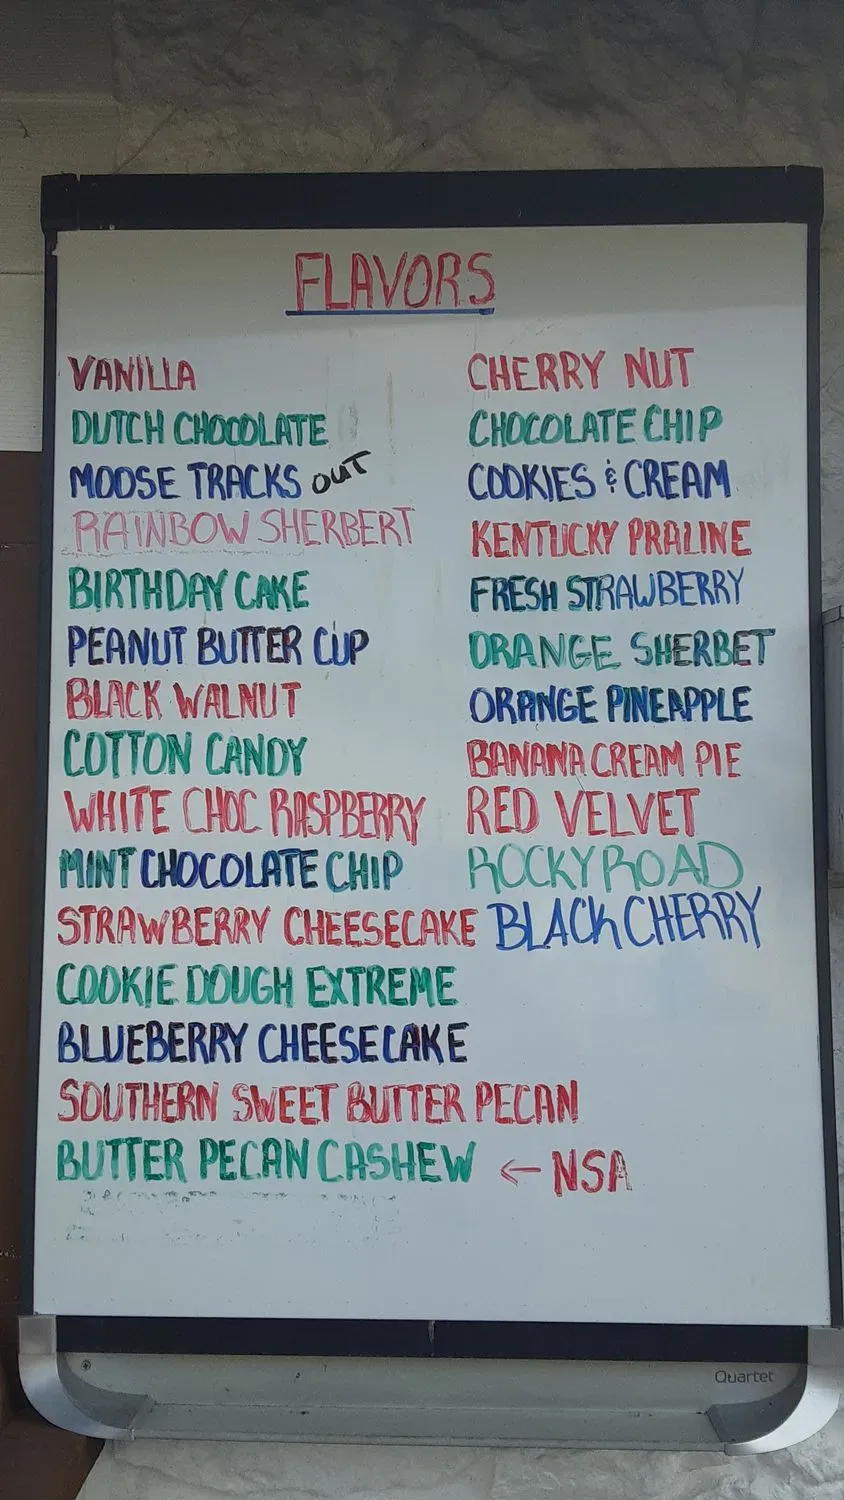 FLAVORS
VANILLA
DUTCH CHOCOLATE
MOOSE TRACKS OUT
RAINBOW SHERBERT
BIRTHDAY CAKE
PEANUT BUTTER CUP
BLACK WALNUT
COTTON CANDY
WHITE CHOC RASPBERRY
MINT CHOCOLATE CHIP
STRAWBERRY CHEESECAKE
COOKIE DOUGH EXTREME
BLUEBERRY CHEESECAKE
SOUTHERN SWEET BUTTER PECAN
BUTTER PECAN CASHEW ← NSA
CHERRY NUT
CHOCOLATE CHIP
COOKIES & CREAM
KENTUCKY PRALINE
FRESH STRAWBERRY
ORANGE SHERBET
ORANGE PINEAPPLE
BANANA CREAM PIE
RED VELVET
ROCKY ROAD
BLACK CHERRY
Quartet